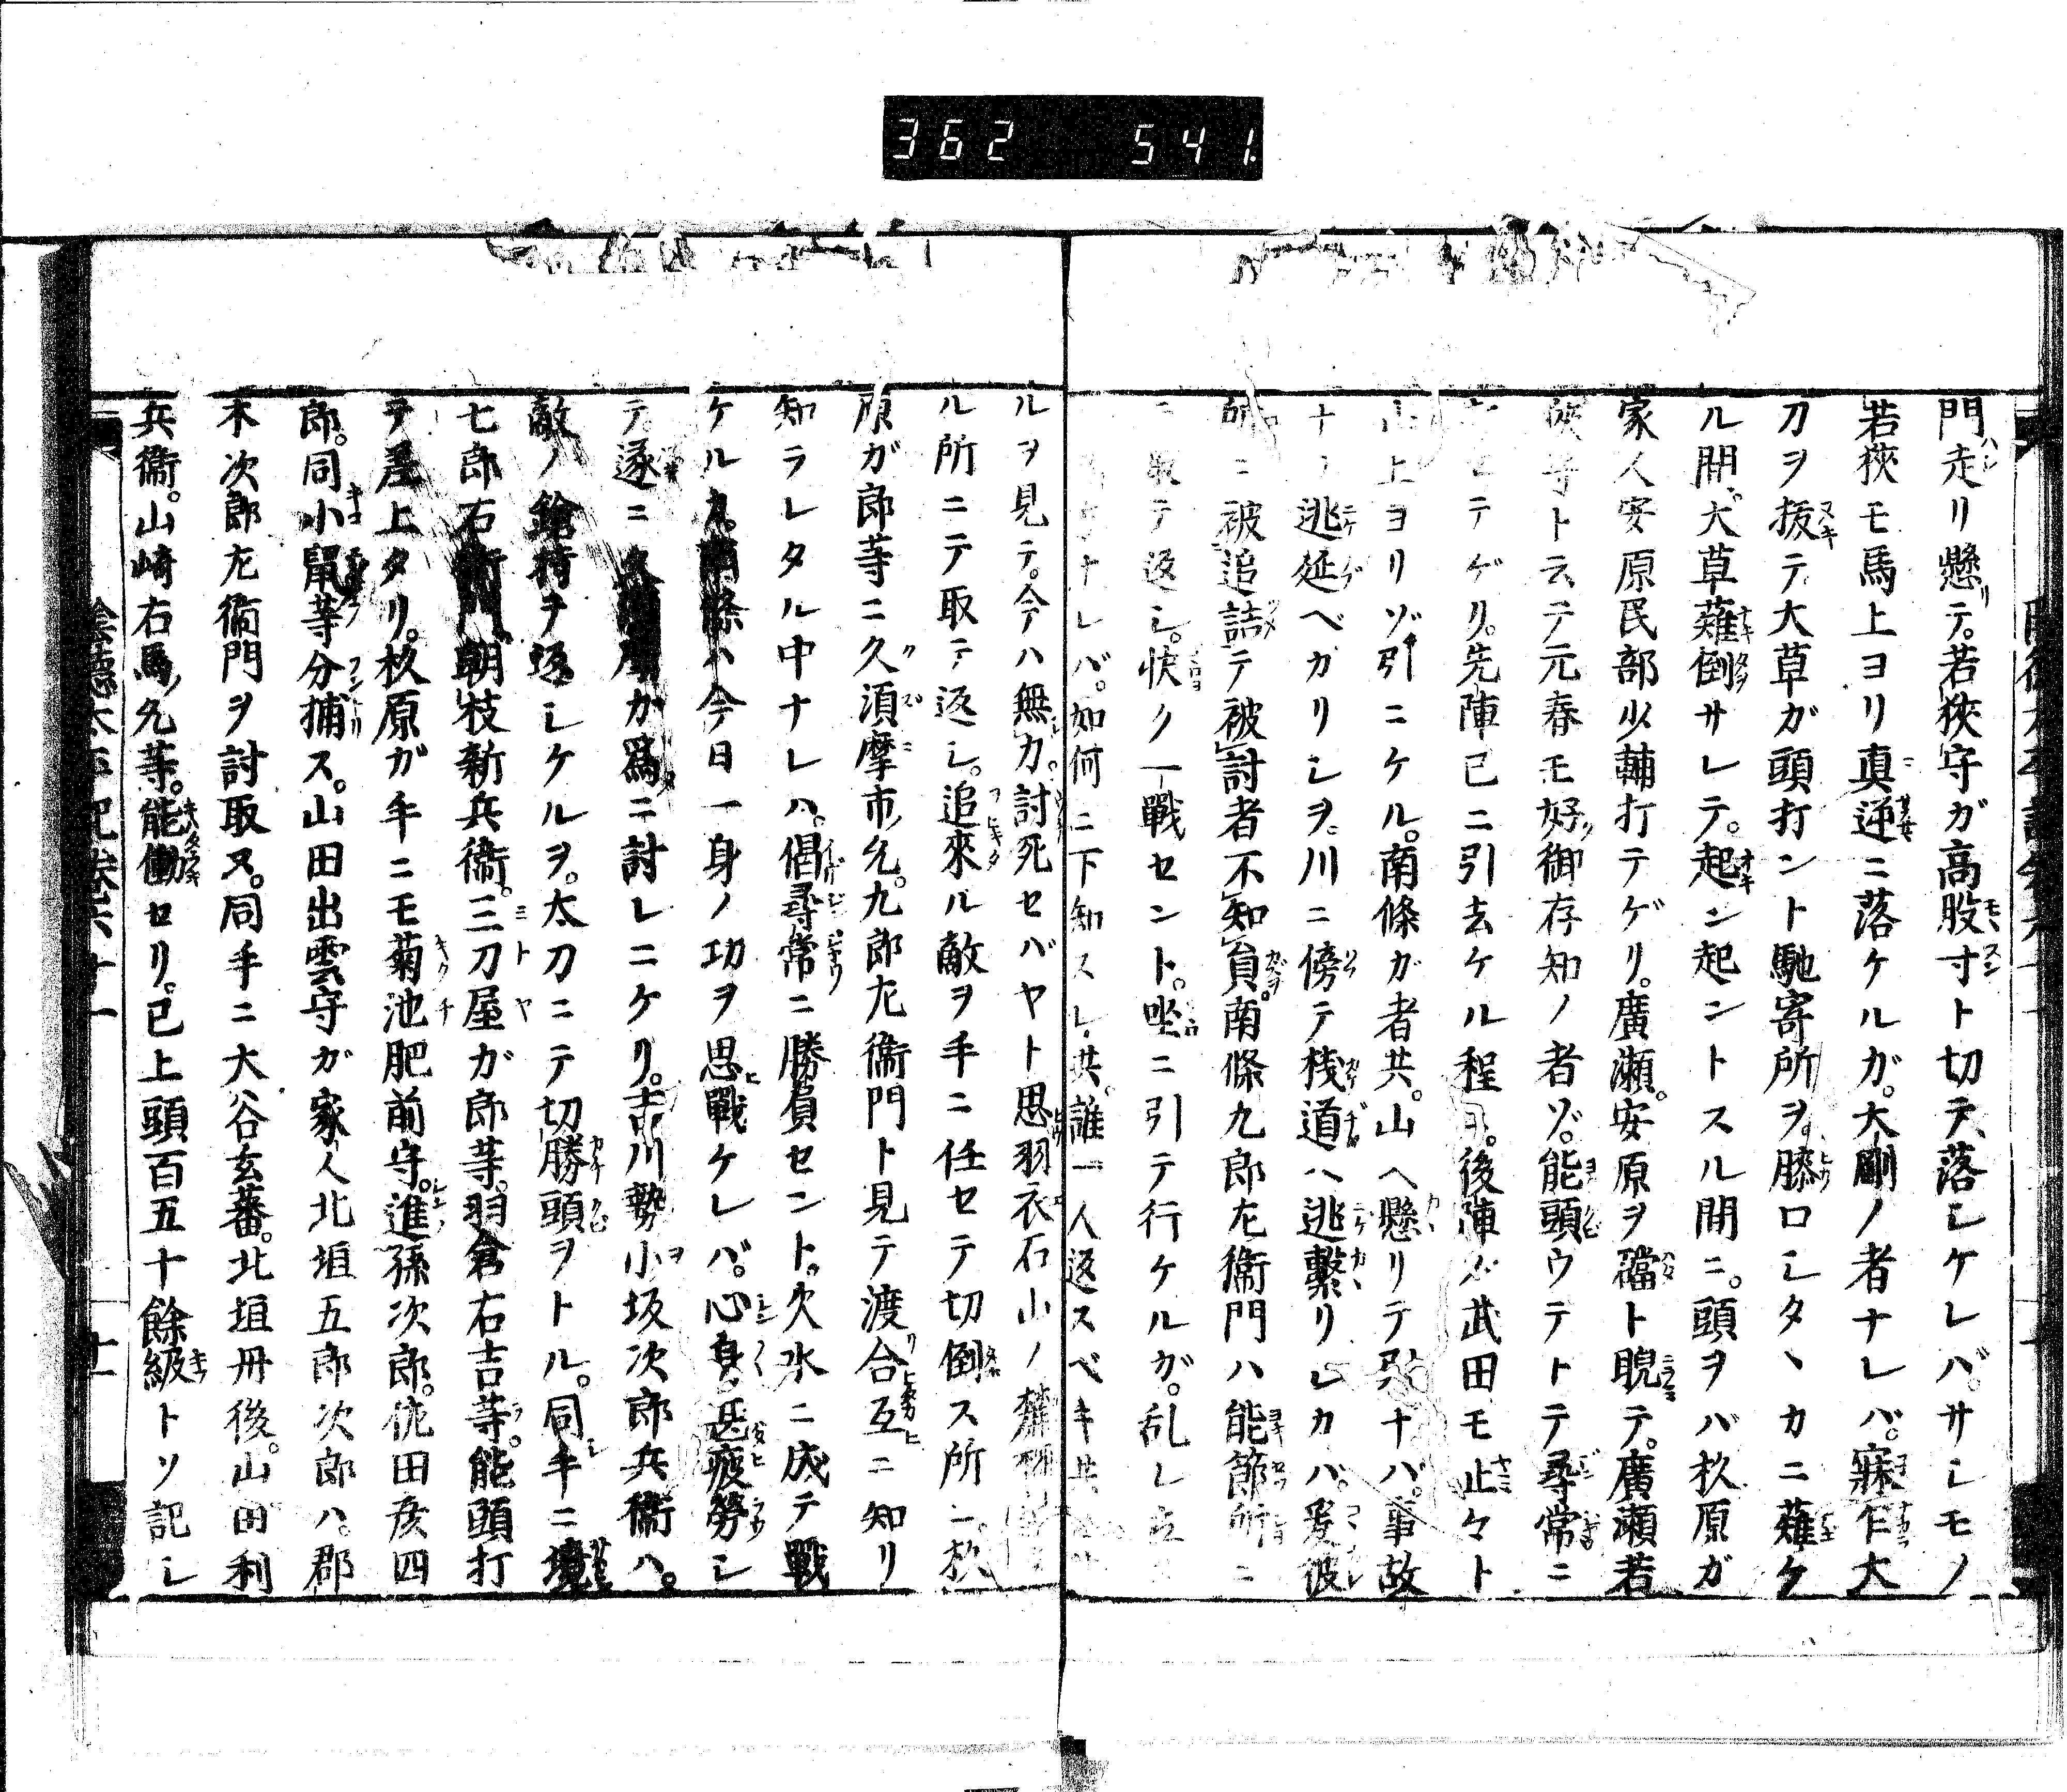 362 541.
門走リ懸テ。若狹守ガ高股寸ト切テ落シケレバ。サシモノ
若狹モ馬上ヨリ真逆ニ落ケルガ。大剛ノ者ナレバ。寐乍大
刀ヲ抜テ大草ガ頭打ント馳寄所ヲ。膝口シタヽカニ薙ケ
ル間。大草薙倒サレテ。起ン起ントスル間ニ。頭ヲバ杦原ガ
家人安原民部少輔打テゲリ。廣瀬。安原ヲ礑ト睨テ。廣瀬若
狹守トテ元春モ好御存知ノ者ゾ。能頭ウテトテ尋常ニ
テゲリ。先陣已ニ引去ケル程ニ。後陣ノ武田モ止々ト
山上ヨリゾ引ニケル。南條ガ者共。山ヘ懸リテ引ナバ。事故
ナク逃延ベカリシヲ。川ニ傍テ棧道ヘ逃繋リシカバ。爰彼
ニ被追詰テ被討者不知負。南條九郎左衞門ハ能節所ニ
テ返シ。快ク一戰セント。坐ニ引テ行ケルガ。乱レ立
ナレバ。如何ニ下知スレ共。誰一人返スベキ共
ルヲ見テ。今ハ無力。討死セバヤト思。羽衣石山ノ麓
ル所ニテ取テ返シ。追來ル敵ヲ手ニ任セテ切倒ス所ニ。杦
原ガ郎等ニ久須摩市允。九郎左衞門ト見テ渡合互ニ知リ
知ラレタル中ナレハ。偈尋常ニ勝負セント。火水ニ成テ戰
ケルカ。南條ハ今日一身ノ功ヲ思戰ケレバ。心身甚疲勞シ
テ。遂ニ久須摩カ爲ニ討レニケリ。吉川勢小坂次郎兵衞ハ。
敵ノ鎗持ヲ返シケルヲ。太刀ニテ切勝頭ヲトル。同手ニ境
七郎右衞門。朝枝新兵衞。三刀屋ガ郎等。羽倉右吉等。能頭打
テ差上タリ。杦原ガ手ニモ菊池肥前守。進孫次郎。佗田彦四
郎。同小鼠等分捕ス。山田出雲守ガ家人北垣五郎次郎ハ。郡
木次郎左衞門ヲ討取ヌ。同手ニ大谷玄蕃。北垣丹後。山田利
兵衞。山崎右馬允等。能働セリ。已上頭百五十餘級トソ記シ
陰德太平記卷六十一 十一